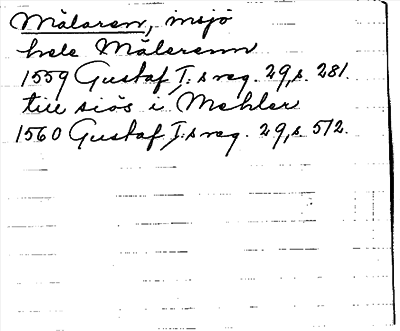 Mälaren, insjö
hele Mälerenn
1559 Gustaf I:s reg. 29, s. 281.
till siös i Mehler
1560 Gustaf I:s reg. 29, s. 512.